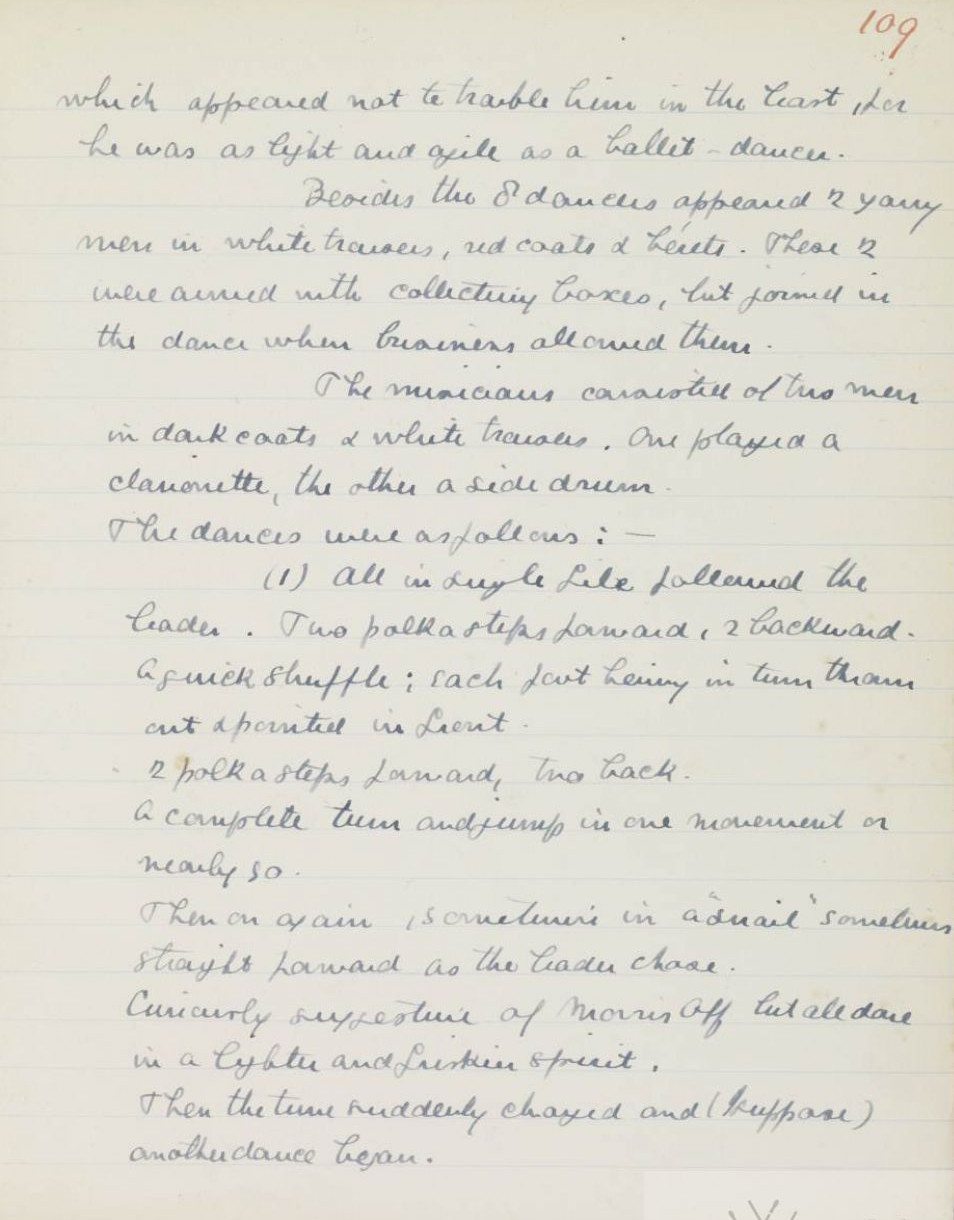 109
which appeared not to trouble him in the least, for
he was as light and agile as a ballet-dancer.
Besides the 8 dancers appeared 2 young
men in white trousers, red coats & bérets. These 2
were armed with collecting boxes, but joined in
the dance when business allowed them.
The musicians consisted of two men
in dark coats & white trousers. One played a
clarionette, the other a side drum.
The dances were as follows : —
(1) All in single file followed the
leader. Two polka steps forward, 2 backward.
A quick shuffle; each foot being in turn thrown
out & pointed in front.
2 polka steps forward, two back.
A complete turn and jump in one movement or
nearly so.
Then on again, sometimes in a "snail" sometimes
straight forward as the leader chose.
Curiously suggestive of Morris Off but all done
in a lighter and friskier spirit.
Then the tune suddenly changed and (I suppose)
another dance began.